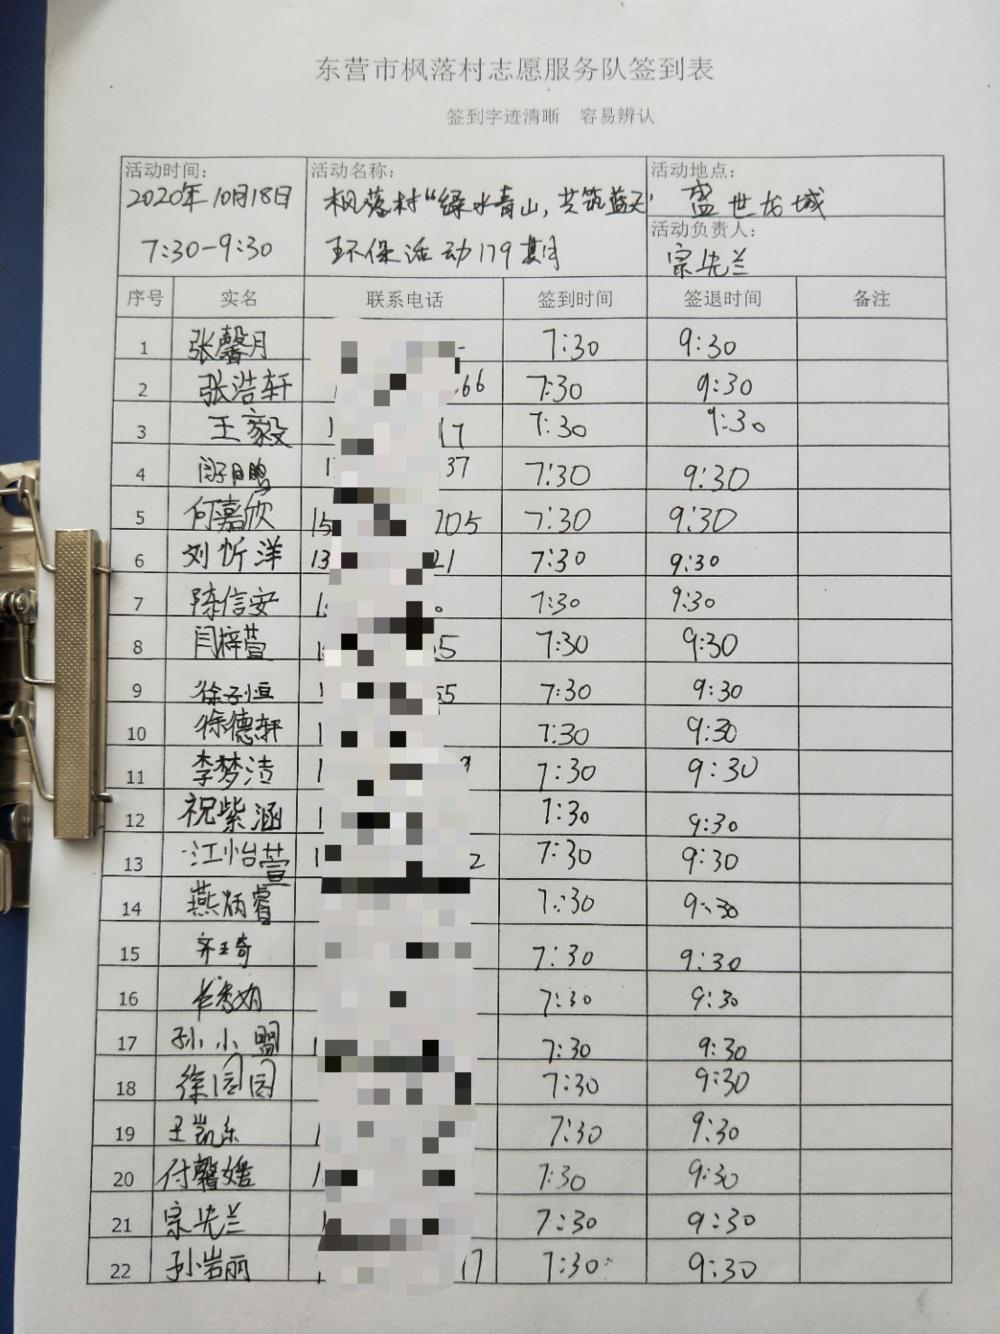 东营市枫落村志愿服务队签到表
签到字迹清晰 容易辨认
活动时间: 活动名称: 活动地点:
2020年10月18日 枫落村“绿水青山,共筑蓝天” 盛世龙城
活动负责人:
7:30-9:30 环保活动179期 宗先兰
序号 实名 联系电话 签到时间 签退时间 备注
1 张馨月 7:30 9:30
2 张浩轩 66 7:30 9:30
3 王毅 1 17 7:30 9:30
4 1 37 7:30 9:30
5 何嘉欣 15 205 7:30 9:30
6 刘忻洋 13 21 7:30 9:30
7 陈信安 1 7:30 9:30
8 闫梓萱 1 5 7:30 9:30
9 徐子恒 1 55 7:30 9:30
10 徐德轩 1 7:30 9:30
11 李梦洁 1 7:30 9:30
12 祝紫涵 1 7:30 9:30
13 江怡萱 1 2 7:30 9:30
14 燕炳睿 7:30 9:30
15 齐王奇 7:30 9:30
16 7:30 9:30
17 孙小盟 7:30 9:30
18 徐园园 7:30 9:30
19 王凯东 1 7:30 9:30
20 付馨媛 1 7:30 9:30
21 宗先兰 1 7:30 9:30
22 孙岩丽 1 17 7:30 9:30